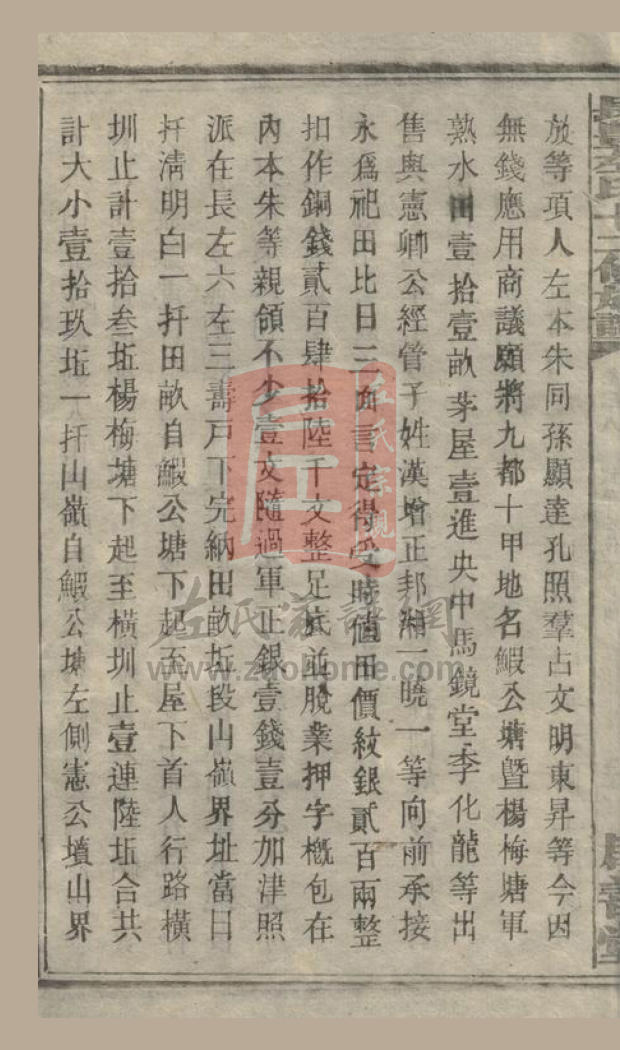 放等項人左本朱同孫顯達孔照羣占文明東昇等今因
無錢應用商議願將九都十甲地名鰕公塘暨楊梅塘軍
熟水田壹拾壹畝茅屋壹進央中馬鏡堂季化龍等出
售與憲卿公經管子姓漢增正邦湘一曉一等向前承接
永爲祀田比日三面言定得受時値田價紋銀貳百兩整
扣作銅錢貳百肆拾陸千文整足底並脫業押字槪包在
內本朱等親領不少壹文隨過軍正銀壹錢壹分加津照
派在長左六左三壽戶下完納田畝坵段山嶺界址當日
扦淸明白一扦田畝自鰕公塘下起至屋下首人行路橫
圳止計壹拾叁坵楊梅塘下起至橫圳止壹連陸坵合共
計大小壹拾玖坵一扦山嶺自鰕公塘左側憲公墳山界
左氏宗親
左氏族譜網
www.zuohome.com